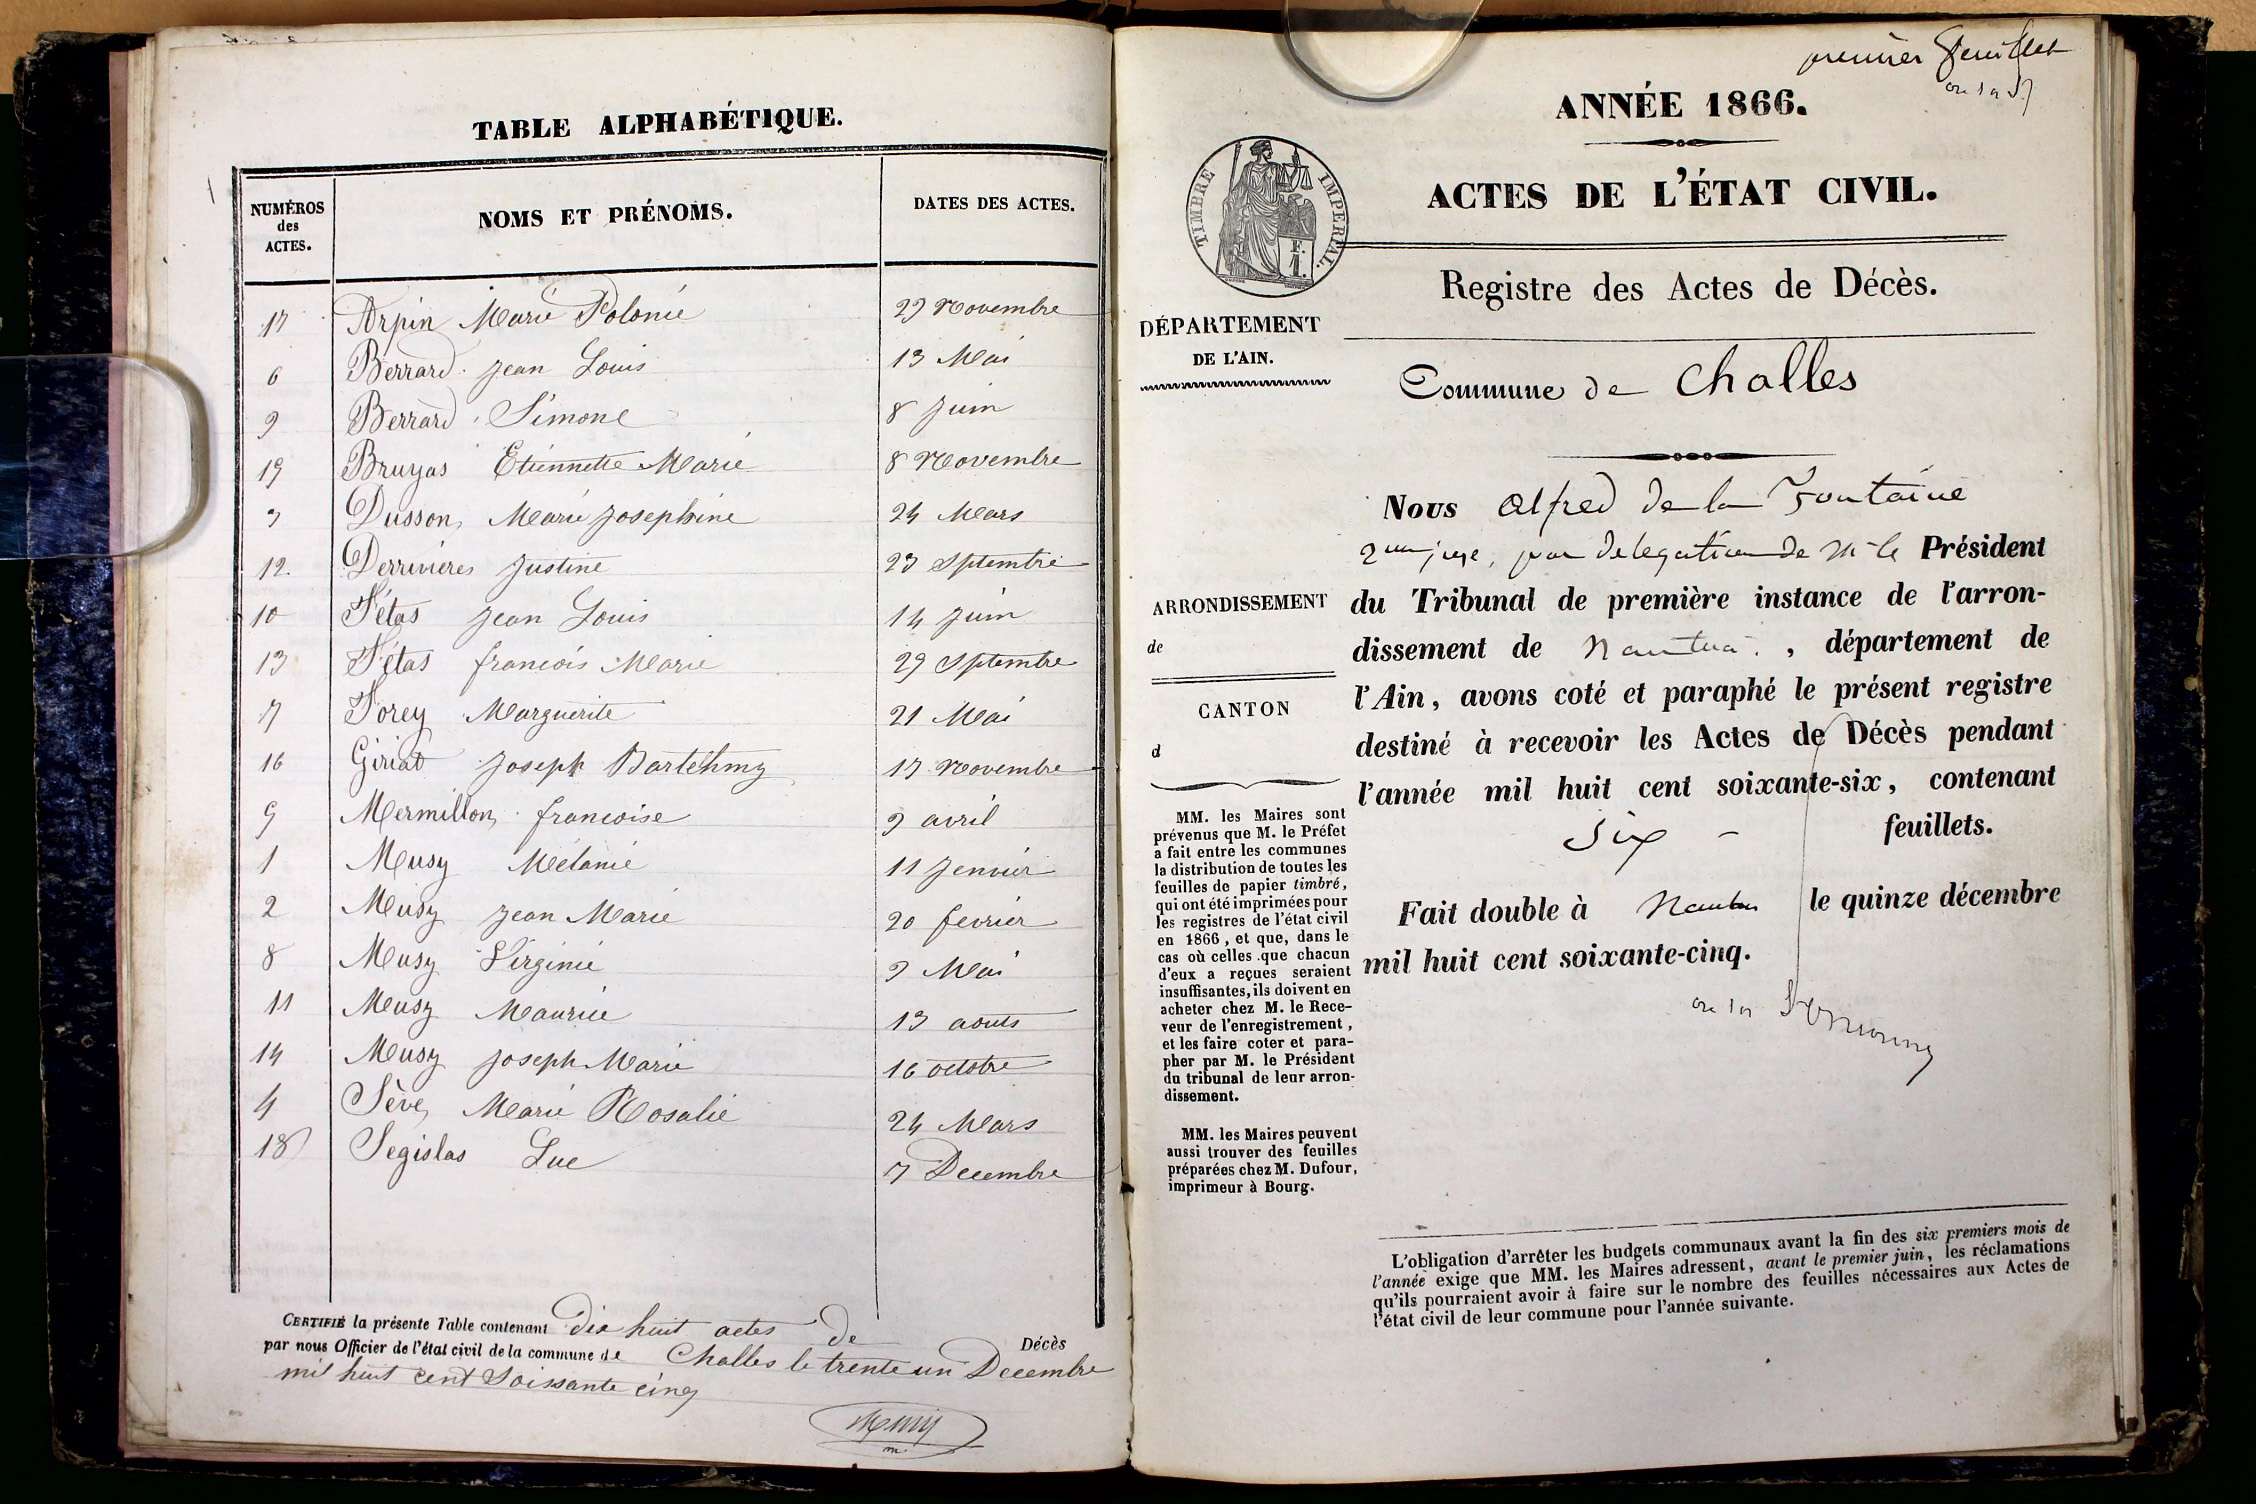 TABLE ALPHABÉTIQUE.
NUMÉROS des ACTES. NOMS ET PRÉNOMS. DATES DES ACTES.
17 Arpin Marie Polonie 29 Novembre
6 Berrard Jean Louis 13 Mai
9 Berrard Simone 8 Juin
19 Bruyas Etiennette Marie 8 Novembre
3 Dusson Marie Josephine 24 Mars
12 Derrivières Justine 23 Septembre
10 Fétas Jean Louis 14 Juin
13 Fétas francois Marie 29 Septembre
7 Forey Marguerite 21 Mai
16 Giriat Joseph Bartehmy 17 Novembre
5 Mermillon francoise 9 avril
1 Musy Mélanie 11 Jenvier
2 Musy Jean Marie 20 fevrier
8 Musy Virginie 9 Mai
11 Musy Maurice 13 aouts
14 Musy Joseph Marie 16 octobre
4 Sève Marie Rosalie 24 Mars
18 Segislas Luc 7 Decembre
CERTIFIÉ la présente Table contenant dix huit actes de Décès
par nous Officier de l'état civil de la commune de Challes le trente un Decembre
mil huit cent Soissante cinq
premier feuillet
ANNÉE 1866.
ACTES DE L'ÉTAT CIVIL.
TIMBRE IMPÉRIAL.
1 F.
Registre des Actes de Décès.
DÉPARTEMENT
DE L'AIN.
Commune de Challes
Nous Alfred de la Fontaine
juge, par délégation de M. le Président
du Tribunal de première instance de l'arron-
dissement de Nantua, département de
l'Ain, avons coté et paraphé le présent registre
destiné à recevoir les Actes de Décès pendant
l'année mil huit cent soixante-six, contenant
Six feuillets.
Fait double à Nantua le quinze décembre
mil huit cent soixante-cinq.
ARRONDISSEMENT
de
CANTON
d
MM. les Maires sont
prévenus que M. le Préfet
a fait entre les communes
la distribution de toutes les
feuilles de papier timbré,
qui ont été imprimées pour
les registres de l'état civil
en 1866, et que, dans le
cas où celles que chacun
d'eux a reçues seraient
insuffisantes, ils doivent en
acheter chez M. le Rece-
veur de l'enregistrement,
et les faire coter et para-
pher par M. le Président
du tribunal de leur arron-
dissement.
MM. les Maires peuvent
aussi trouver des feuilles
préparées chez M. Dufour,
imprimeur à Bourg.
L'obligation d'arrêter les budgets communaux avant la fin des six premiers mois de
l'année exige que MM. les Maires adressent, avant le premier juin, les réclamations
qu'ils pourraient avoir à faire sur le nombre des feuilles nécessaires aux Actes de
l'état civil de leur commune pour l'année suivante.